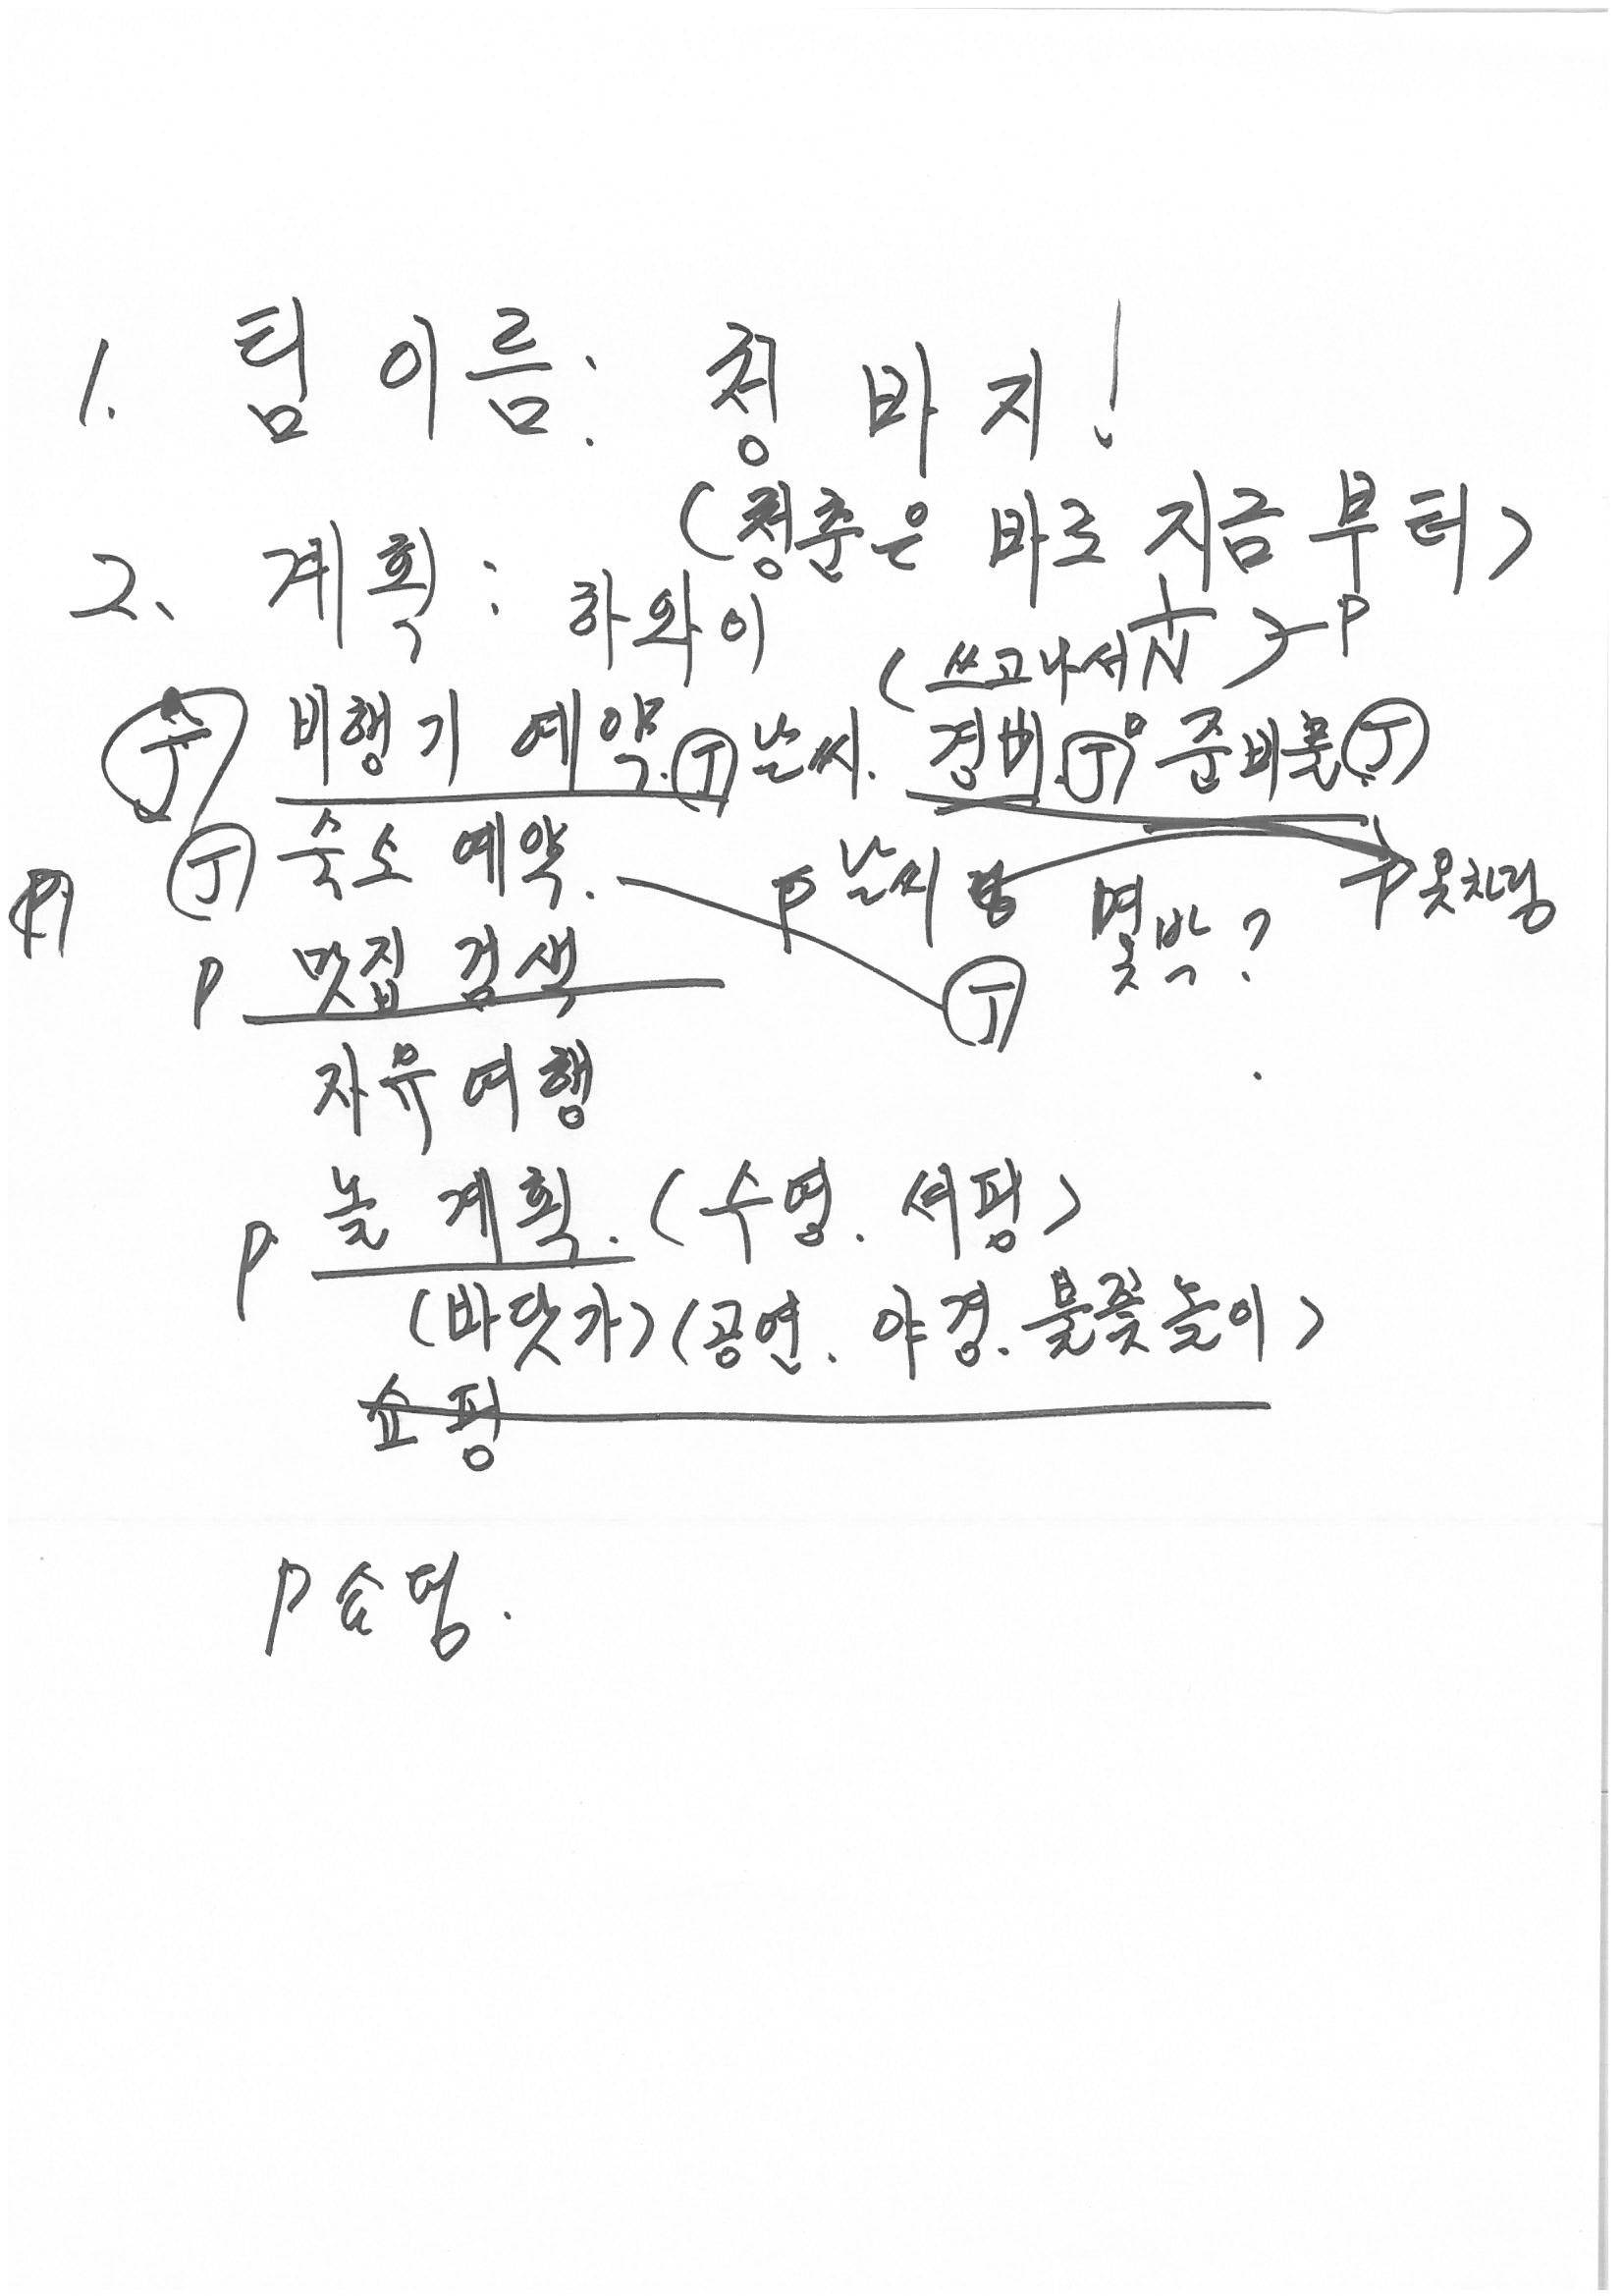 1. 팀 이름: 청 바 지!
(청춘은 바로 지금 부터)
2. 계획: 하와이
(쓰고나서 N) P
J 비행기 예약. J 날씨. 경비. J 준비물 J
J 숙소 예약. P 날씨 몇박? P 옷차림
P 맛집 검색 J
자유여행
P 놀 계획. (수영. 서핑)
(바닷가) (공연. 야경. 불꽃놀이)
쇼핑
P 쇼핑.